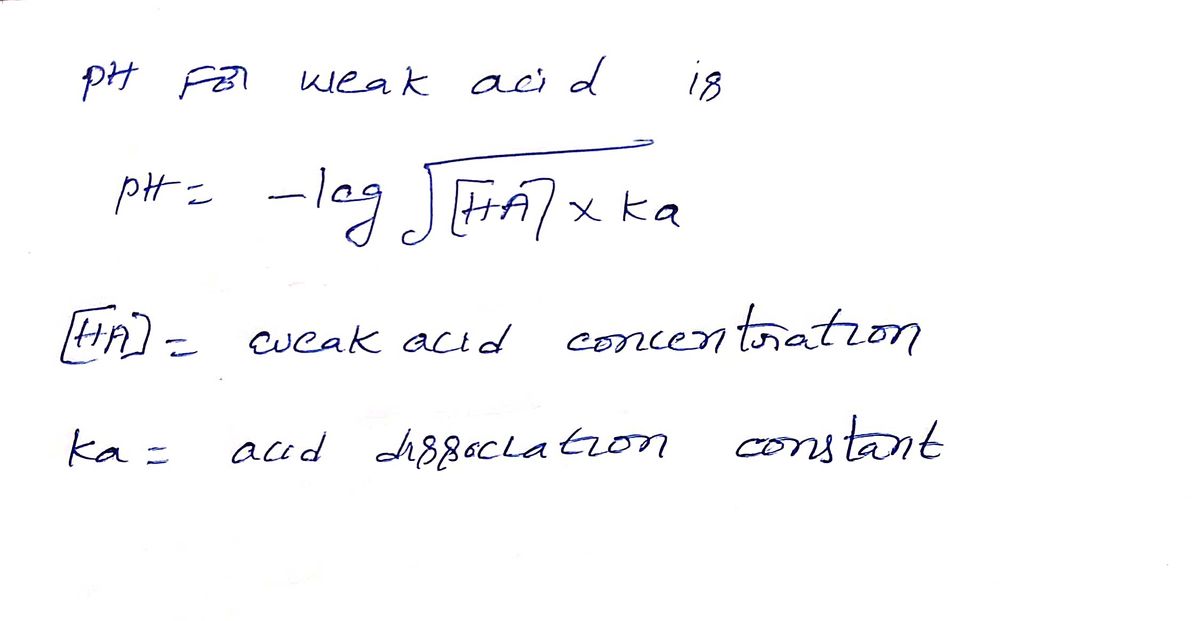 pH For weak acid is
pH = -log √[HA] × ka
[HA] = weak acid concentration
ka = acid dissociation constant